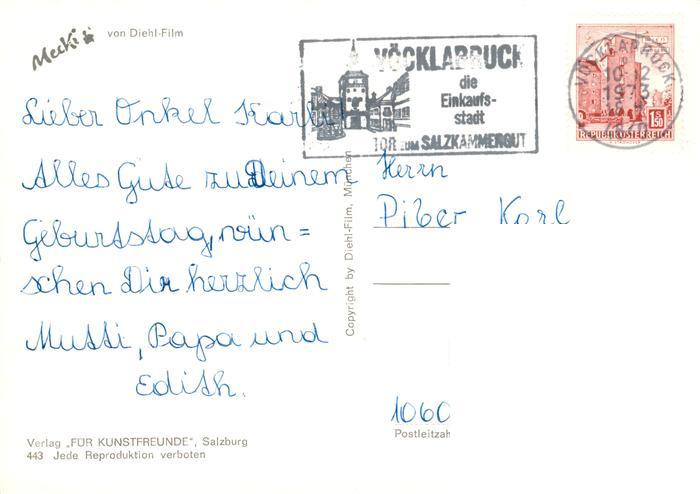 Mecki von Diehl-Film
Lieber Onkel Karli!
Alles Gute zu Deinem
Geburtstag, wün =
schen Dir herzlich
Mutti, Papa und
Edith.
Verlag „FÜR KUNSTFREUNDE“, Salzburg
443 Jede Reproduktion verboten
Copyright by Diehl-Film, München
VÖCKLABRUCK
die
Einkaufs-
stadt
TOR ZUM SALZKAMMERGUT
VÖCKLABRUCK
10.12.
1973
1.50
REPUBLIK ÖSTERREICH
Herrn
Piber Karl
1060
Postleitzah